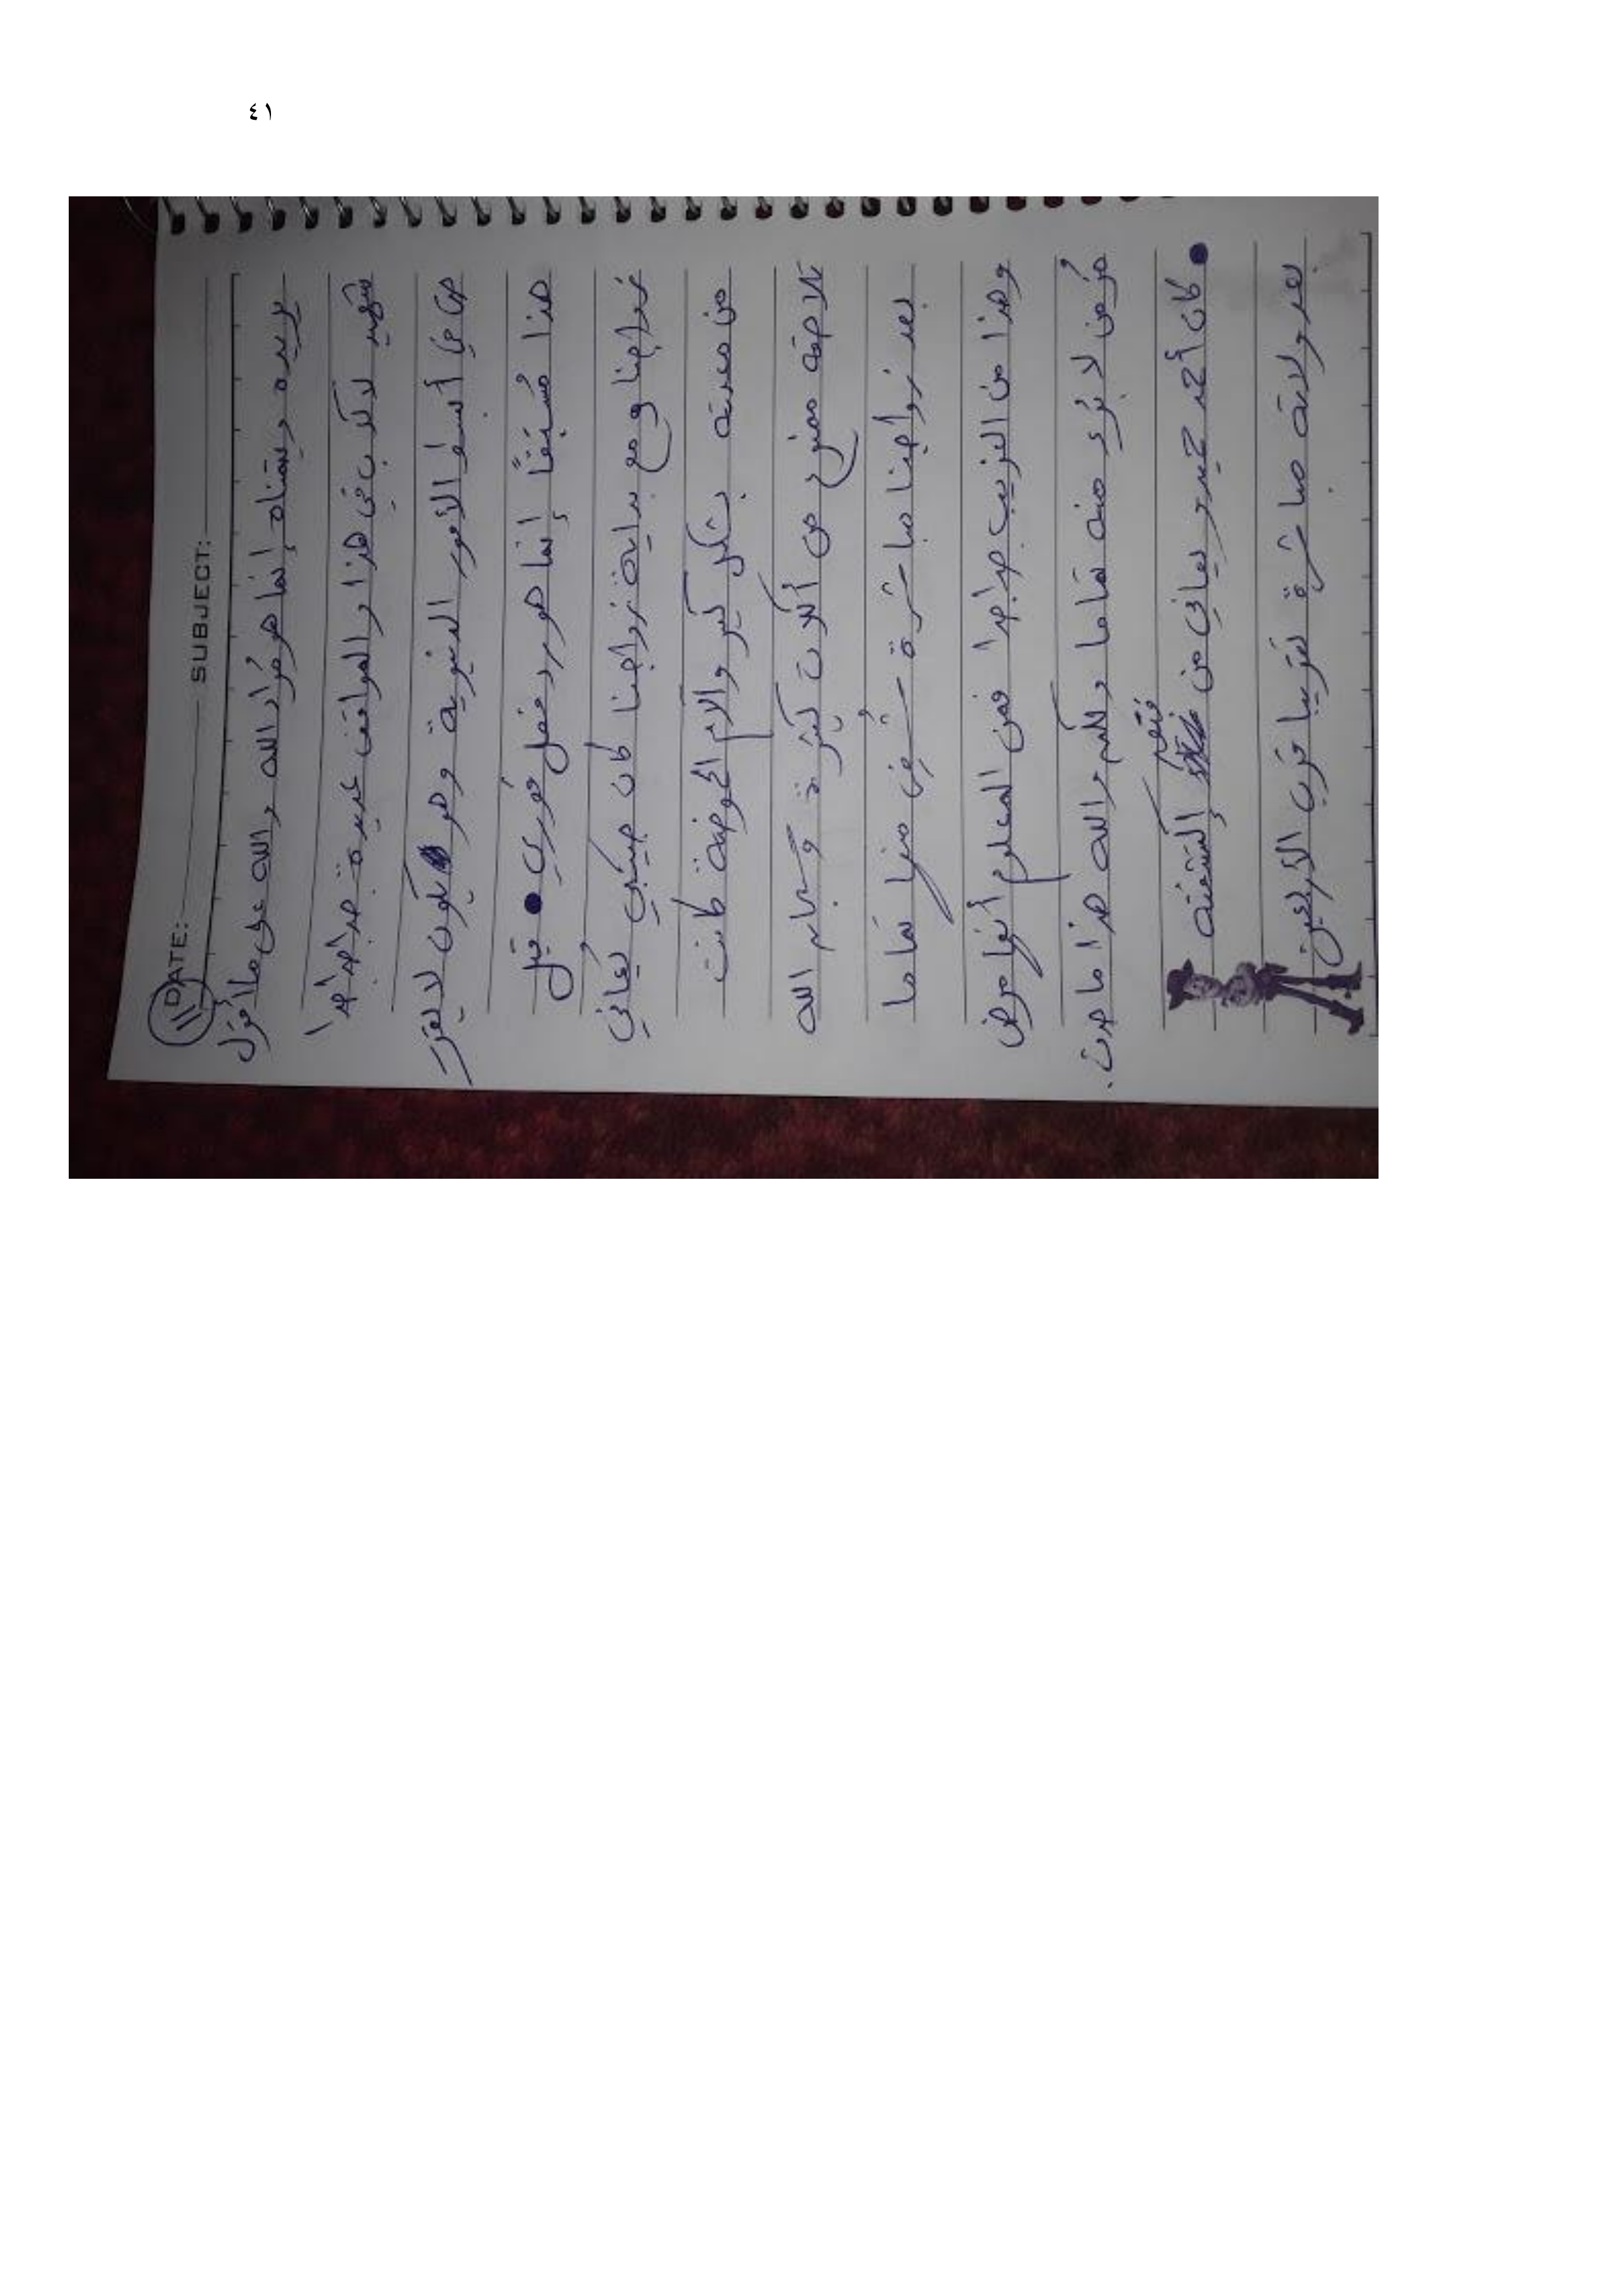 ٤١
DATE: SUBJECT:
يريده ويشاه إنما هو مُراد الله والله على ما أقول
شهيد لا كذب في هذا والمواقف عديدة جداً جداً
حتى في أبسط الأمور الدنيوية وهو يكون لا يقرر
هذا مُسبقاً إنما هو رد فعل فوري ● قبل
زواجنا ومع بداية زواجنا كان حبيبي يُعاني
من معدته بشكل كبير وآلام الحموضة كانت
تلاحقه ممنوع من أكلات كثيرة وسبحان الله
بعد زواجنا مباشرة شُفِيَ منها تماما
وهذا من الغريب جداً فمن المعلوم أنها مرض
مُزمن لا بُرء منه تماما ولكم والله هذا ما حدث.
● كان أحمد حبيبي يعاني من إلتهاب
بعد ولادته مباشرة تقريبا قرب الأربعين